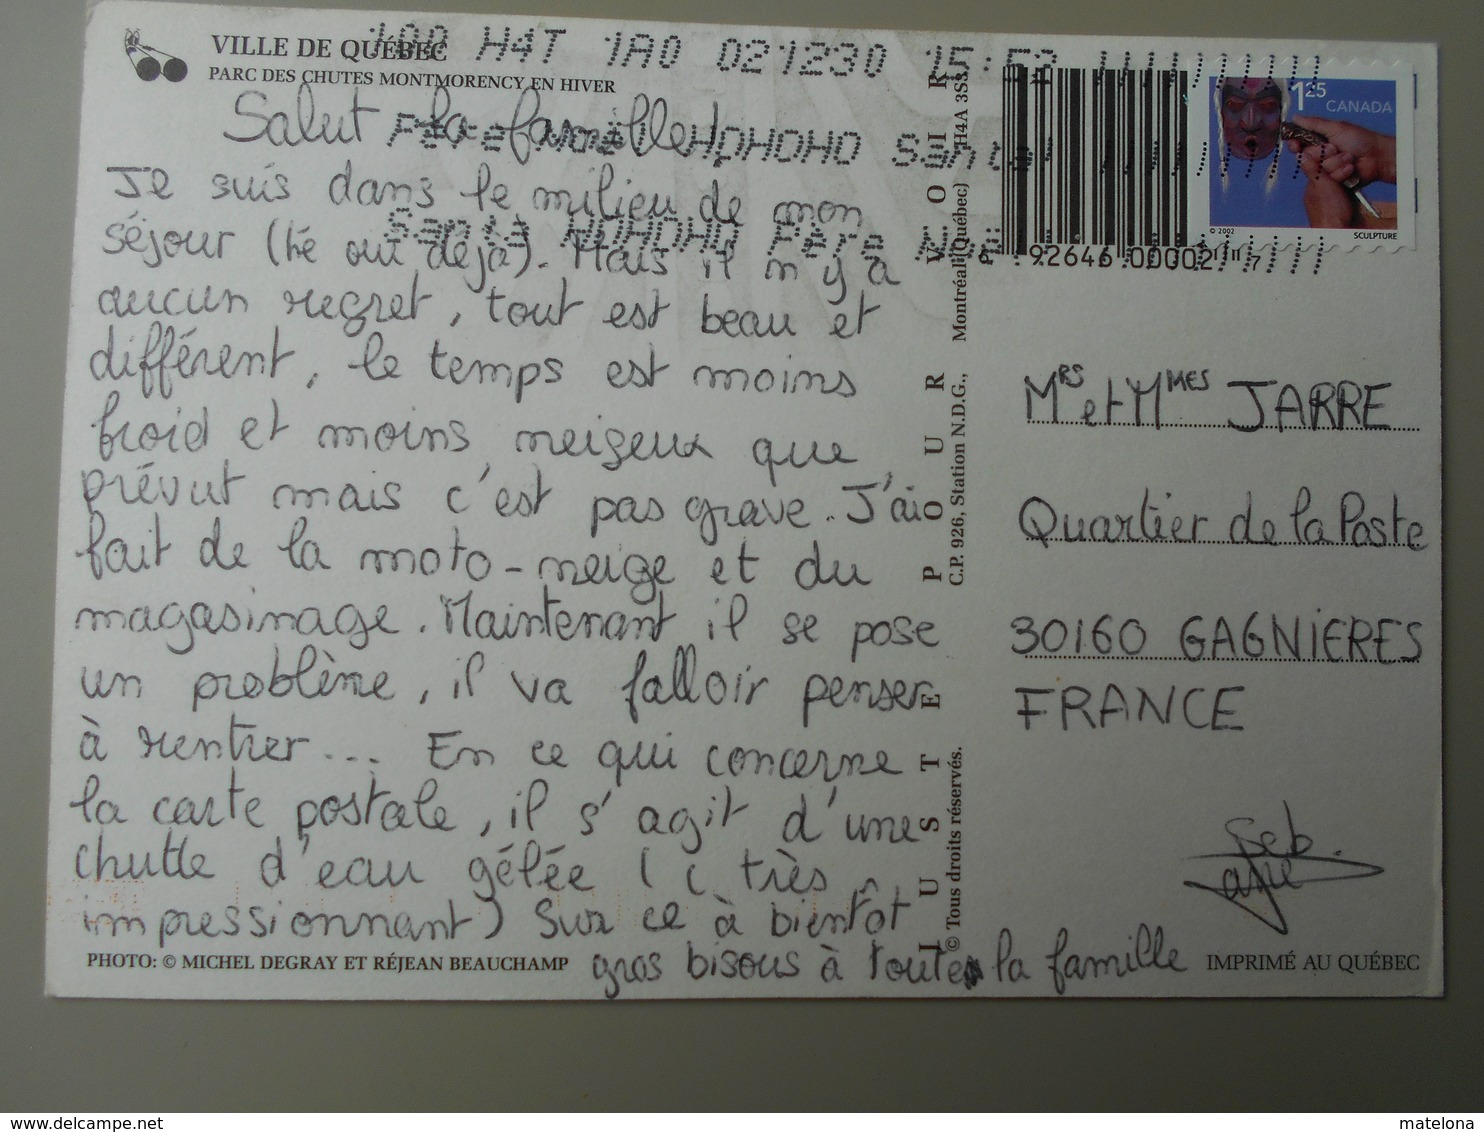 VILLE DE QUÉBEC
PARC DES CHUTES MONTMORENCY EN HIVER
H4T 1A0 021230 15:52
Père Noël HOHOHO Santa
Santa HOHOHO Père Noël
Salut la famille!
Je suis dans le milieu de mon
séjour (hé oui déjà). Mais il n'y a
aucun regret, tout est beau et
différent, le temps est moins
froid et moins neigeux que
prévut mais c'est pas grave. J'ai
fait de la moto-neige et du
magasinage. Maintenant il se pose
un problème, il va falloir penser
à rentrer... En ce qui concerne
la carte postale, il s'agit d'une
chutte d'eau gélée (c très
impressionnant) Sur ce à bientôt
gros bisous à toute la famille
PHOTO: © MICHEL DEGRAY ET RÉJEAN BEAUCHAMP
JUSTE POUR VOIR
© Tous droits réservés. C.P. 926, Station N.D.G., Montréal (Québec) H4A 3S3
92646 00002 7
1 25 CANADA
© 2002 SCULPTURE
MRS et MMES JARRE
Quartier de la Poste
30160 GAGNIERES
FRANCE
Seb.
IMPRIMÉ AU QUÉBEC
https://www.delcampe.net
matelona